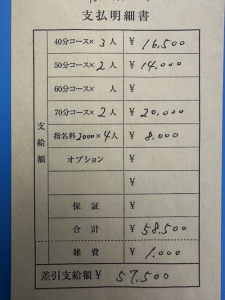 支払明細書
40分コース× 3人 ¥ 16,500
50分コース× 2人 ¥ 14,000
60分コース× 人 ¥
70分コース× 2人 ¥ 20,000
指名料 2000×4人 ¥ 8,000
オプション ¥
¥
保証 ¥
合計 ¥ 58,500
雑費 ¥ 1,000
差引支給額 ¥ 57,500
支給額